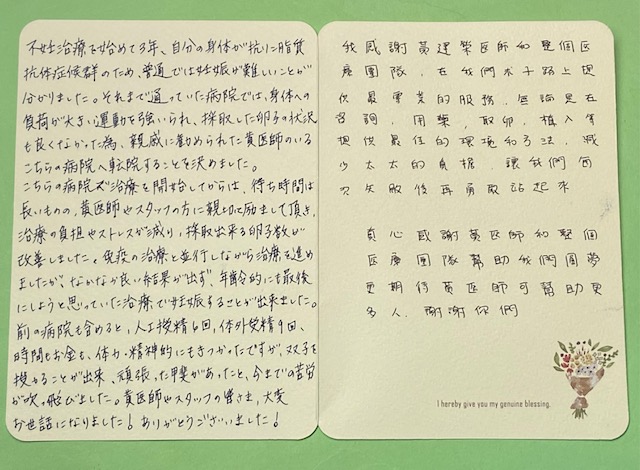 不妊治療を始めて3年、自分の身体が抗リン脂質
抗体症候群のため、普通では妊娠が難しいことが
分かりました。それまで通っていた病院では、身体への
負荷が大きい運動を強いられ、採取した卵子の状況
も良くなかった為、親戚に勧められた黄医師のいる
こちらの病院へ転院することを決めました。
こちらの病院で治療を開始してからは、待ち時間は
長いものの、黄医師やスタッフの方に親切に励まして頂き、
治療の負担やストレスが減り、採取出来る卵子数が
改善しました。免疫の治療と並行しながら治療を進め
ましたが、なかなか良い結果が出ず、年齢的にも最後
にしようと思っていた治療で妊娠することが出来ました。
前の病院も含めると、人工授精6回、体外受精9回、
時間もお金も、体力・精神的にもきつかったですが、双子を
授かることが出来、頑張った甲斐があったと、今までの苦労
が吹っ飛びました。黄医師やスタッフの皆さま、大変
お世話になりました!ありがとうございました!
我感謝黃建榮医師和整個医
療團隊,在我們求子路上提
供最專業的服務,無論是在
咨詢,用藥,取卵,植入等
提供最佳的環境和方法,減
少太太的負擔,讓我們每
次失敗後再勇敢站起來
真心感謝黃医師和整個
医療團隊幫助我們圓夢
更期待黃医師可幫助更
多人,謝謝你們
I hereby give you my genuine blessing.